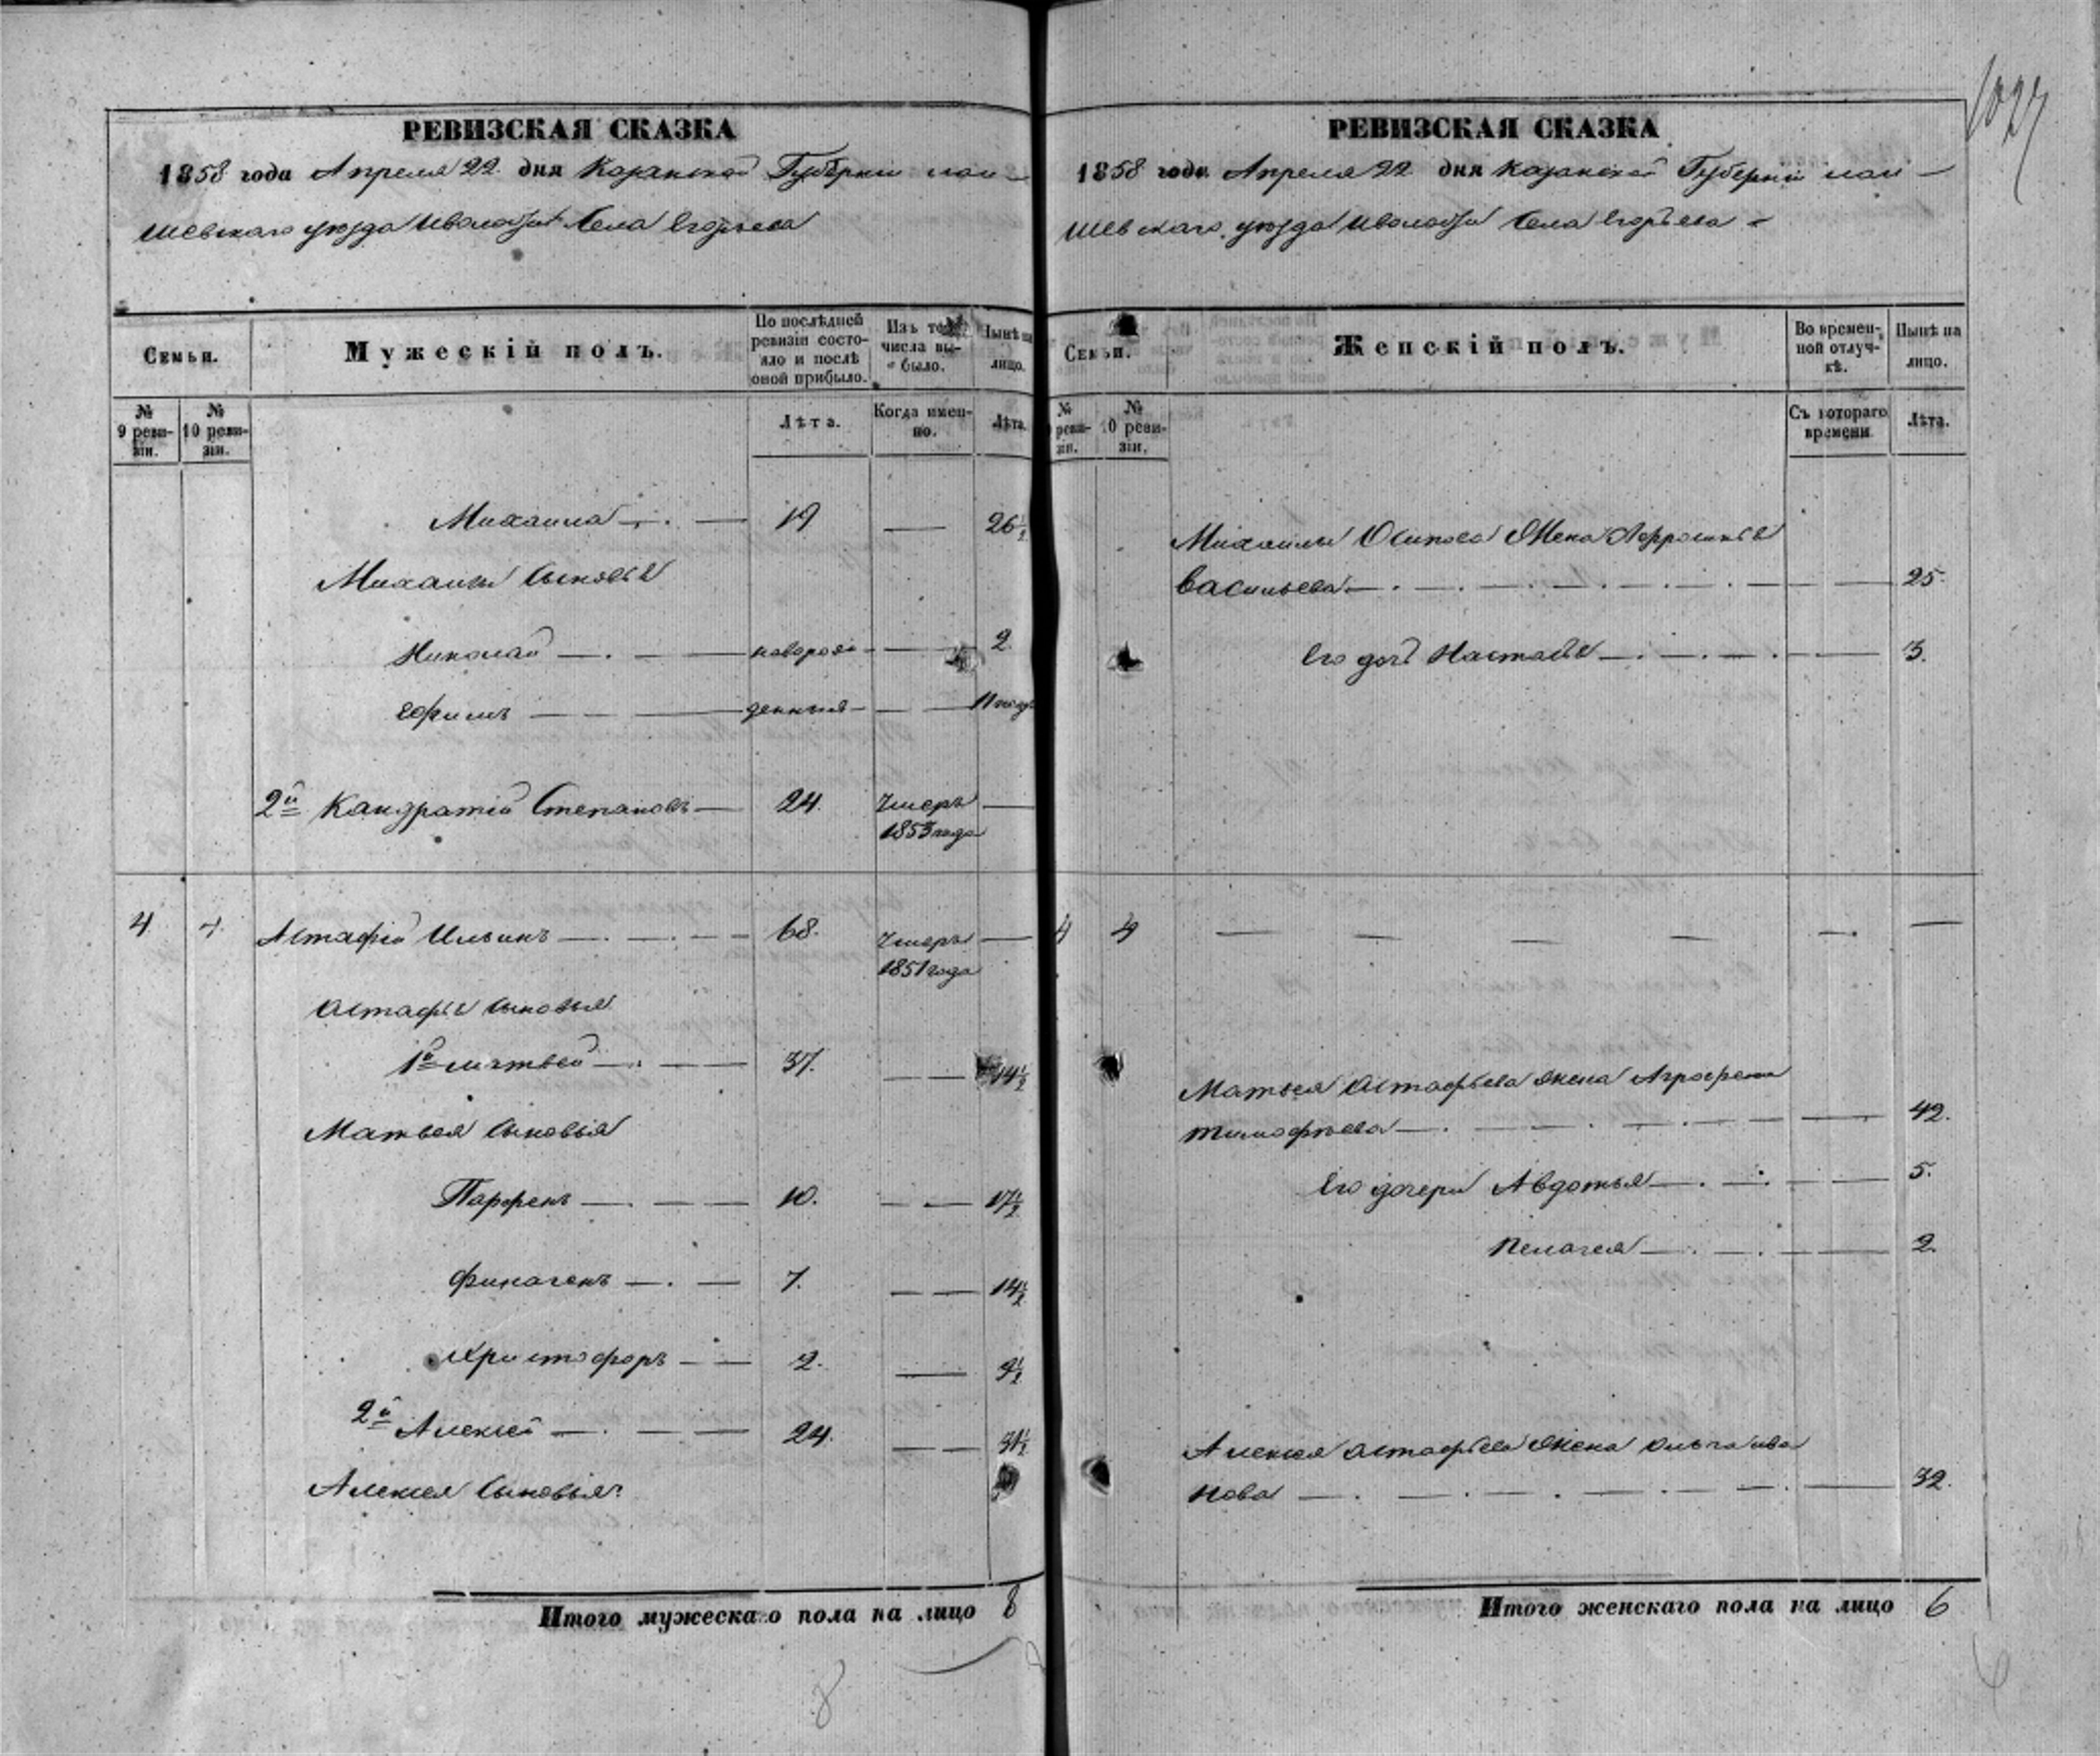 1027
РЕВИЗСКАЯ СКАЗКА
1858 года Апреля 22 дня Казанской Губернии лаи-
шевскаго уезда Села Егорьева
Семьи.
Мужескій полъ.
По послѣдней ревизіи состояло и послѣ оной прибыло.
Изъ того числа выбыло.
Нынѣ на лицо.
№ 9 ревизіи.
№ 10 ревизіи.
Лѣта.
Когда именно.
Лѣта.
Михаила 19 — 26½
Михаилы Сыновья
Николай новорож- — 2.
Ефимъ денныя — 11
2й Кандратій Степановъ — 24. Умеръ —
1853 года
4 4 Астафій Ильинъ — 68. Умеръ —
1851 года
Астафья Сыновья
1й матвей — 37. — 44½
Матвея Сыновья
Парфенъ — 10. — 17½
Финагенъ — 7. — 14½
Христофоръ — 2. — 9½
2й Алексей — 24. — 31½
Алексея Сыновья:
Итого мужескаго пола на лицо 8
8
РЕВИЗСКАЯ СКАЗКА
1858 года Апреля 22 дня Казанской Губерніи лаи-
шевскаго уезда Села Егорьева
Семьи.
Женскій полъ.
Во временной отлучкѣ.
Нынѣ на лицо.
№ ревизіи.
№ 10 ревизіи.
Съ котораго времени
Лѣта.
Михаилы Осипова Жена Афросинья
Васильева — 25.
Его дочь Настасья — 3.
4 4 — — — — — —
Матвея Астафьева жена Аграфена
тимофеева — 42.
Его дочери Авдотья — 5.
Пелагея — 2.
Алексея Астафьева жена Ольга ива
нова — 32.
Итого женскаго пола на лицо 6
6